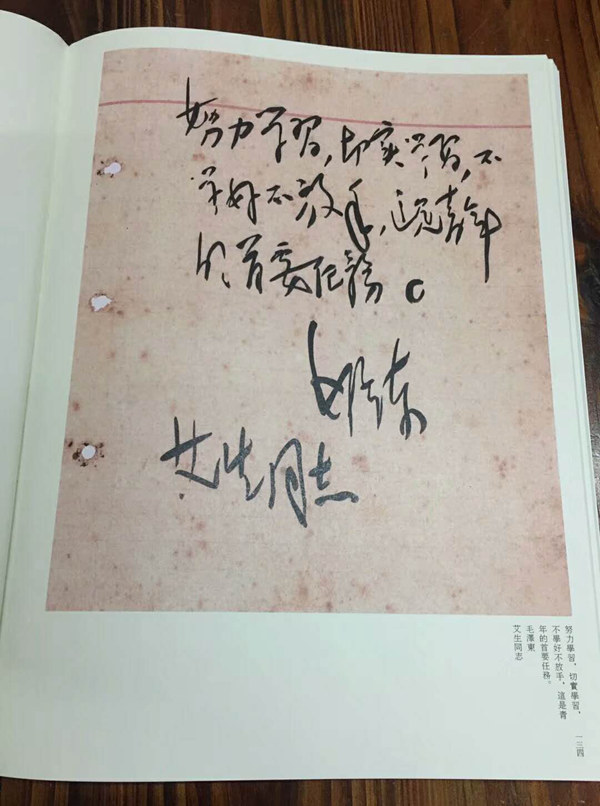 努力学習，切实学習，不
学好不放手，这是青年
的首要任務。
毛泽东
艾生同志
努力學習，切實學習，
不學好不放手，這是青
年的首要任務。
毛澤東
艾生同志
一三四